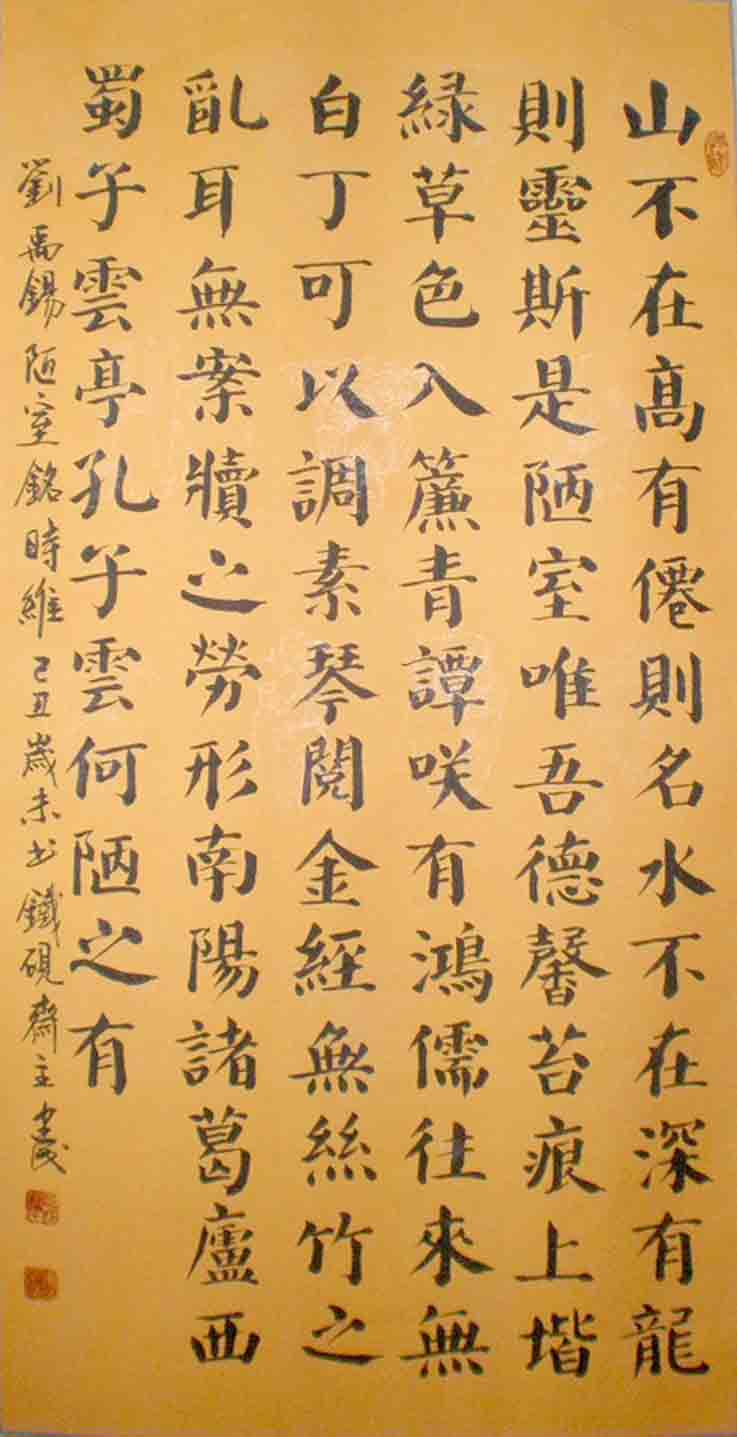 山不在髙有僊則名水不在深有龍
則靈斯是陋室唯吾德馨苔痕上堦
緑草色入簾青譚咲有鴻儒往來無
白丁可以調素琴閲金經無絲竹之
亂耳無案牘之勞形南陽諸葛廬西
蜀子雲亭孔子雲何陋之有
劉禹錫陋室銘時維己丑歲末书鐵硯齋主